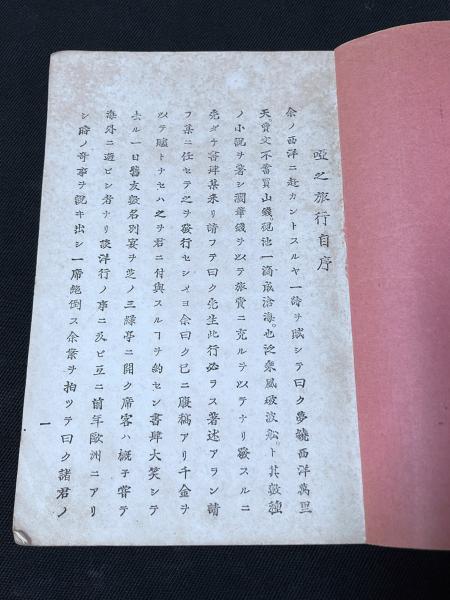 唖之旅行自序
余ノ西洋ニ赴カントスルヤ一詩ヲ賦シテ曰ク夢繞西洋萬里
天。賣文不啻買山錢。硯池一滴成滄海。也泛乗風破波船。ト其数種
ノ小説ヲ著シ潤筆錢ヲ以テ旅費ニ充ルヲ以テナリ發スルニ
先ダチ書肆某来リ請フテ曰ク先生此行必ラス著述アラン請
フ某ニ任セテ之ヲ發行セシメヨ余曰ク已ニ腹稿アリ千金ヲ
以テ贐トナセハ之ヲ君ニ付與スルヿヲ約セン書肆大笑シテ
去ル一日舊友数名別宴ヲ芝ノ三緑亭ニ開ク席客ハ概子嘗テ
海外ニ遊ビシ者ナリ談洋行ノ事ニ及ビ互ニ前年歐洲ニアリ
シ時ノ奇事ヲ説キ出シ一席絶倒ス余案ヲ拍ツテ曰ク諸君ノ
一